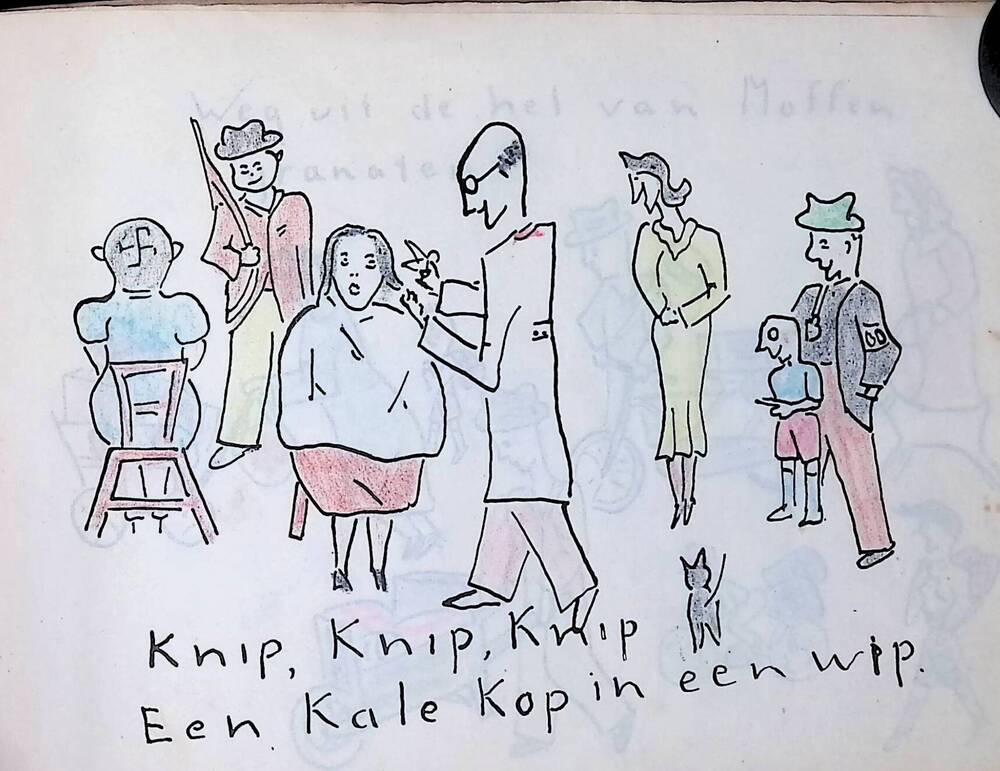 Weg uit de hel van Moffen
granaten
OD
Knip, Knip, Knip
Een Kale Kop in een wip.